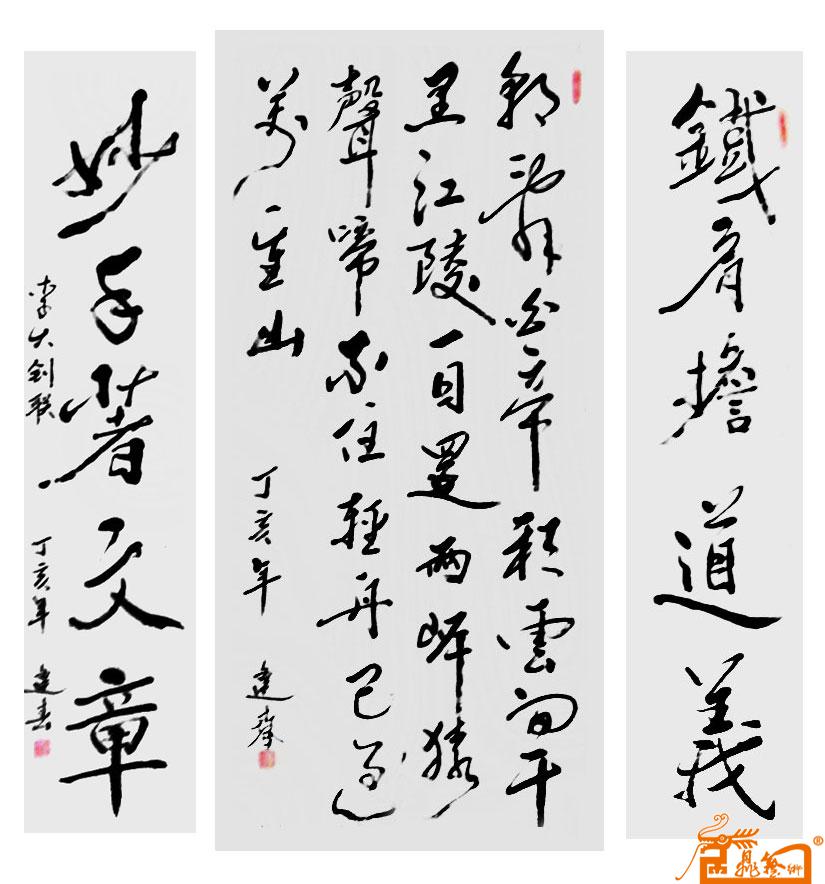 鐵肩擔道義
朝辭白帝彩雲間千
里江陵一日還兩岸猿
聲啼不住輕舟已過
萬重山 丁亥年 建春
妙手著文章
李大钊联 丁亥年 建春